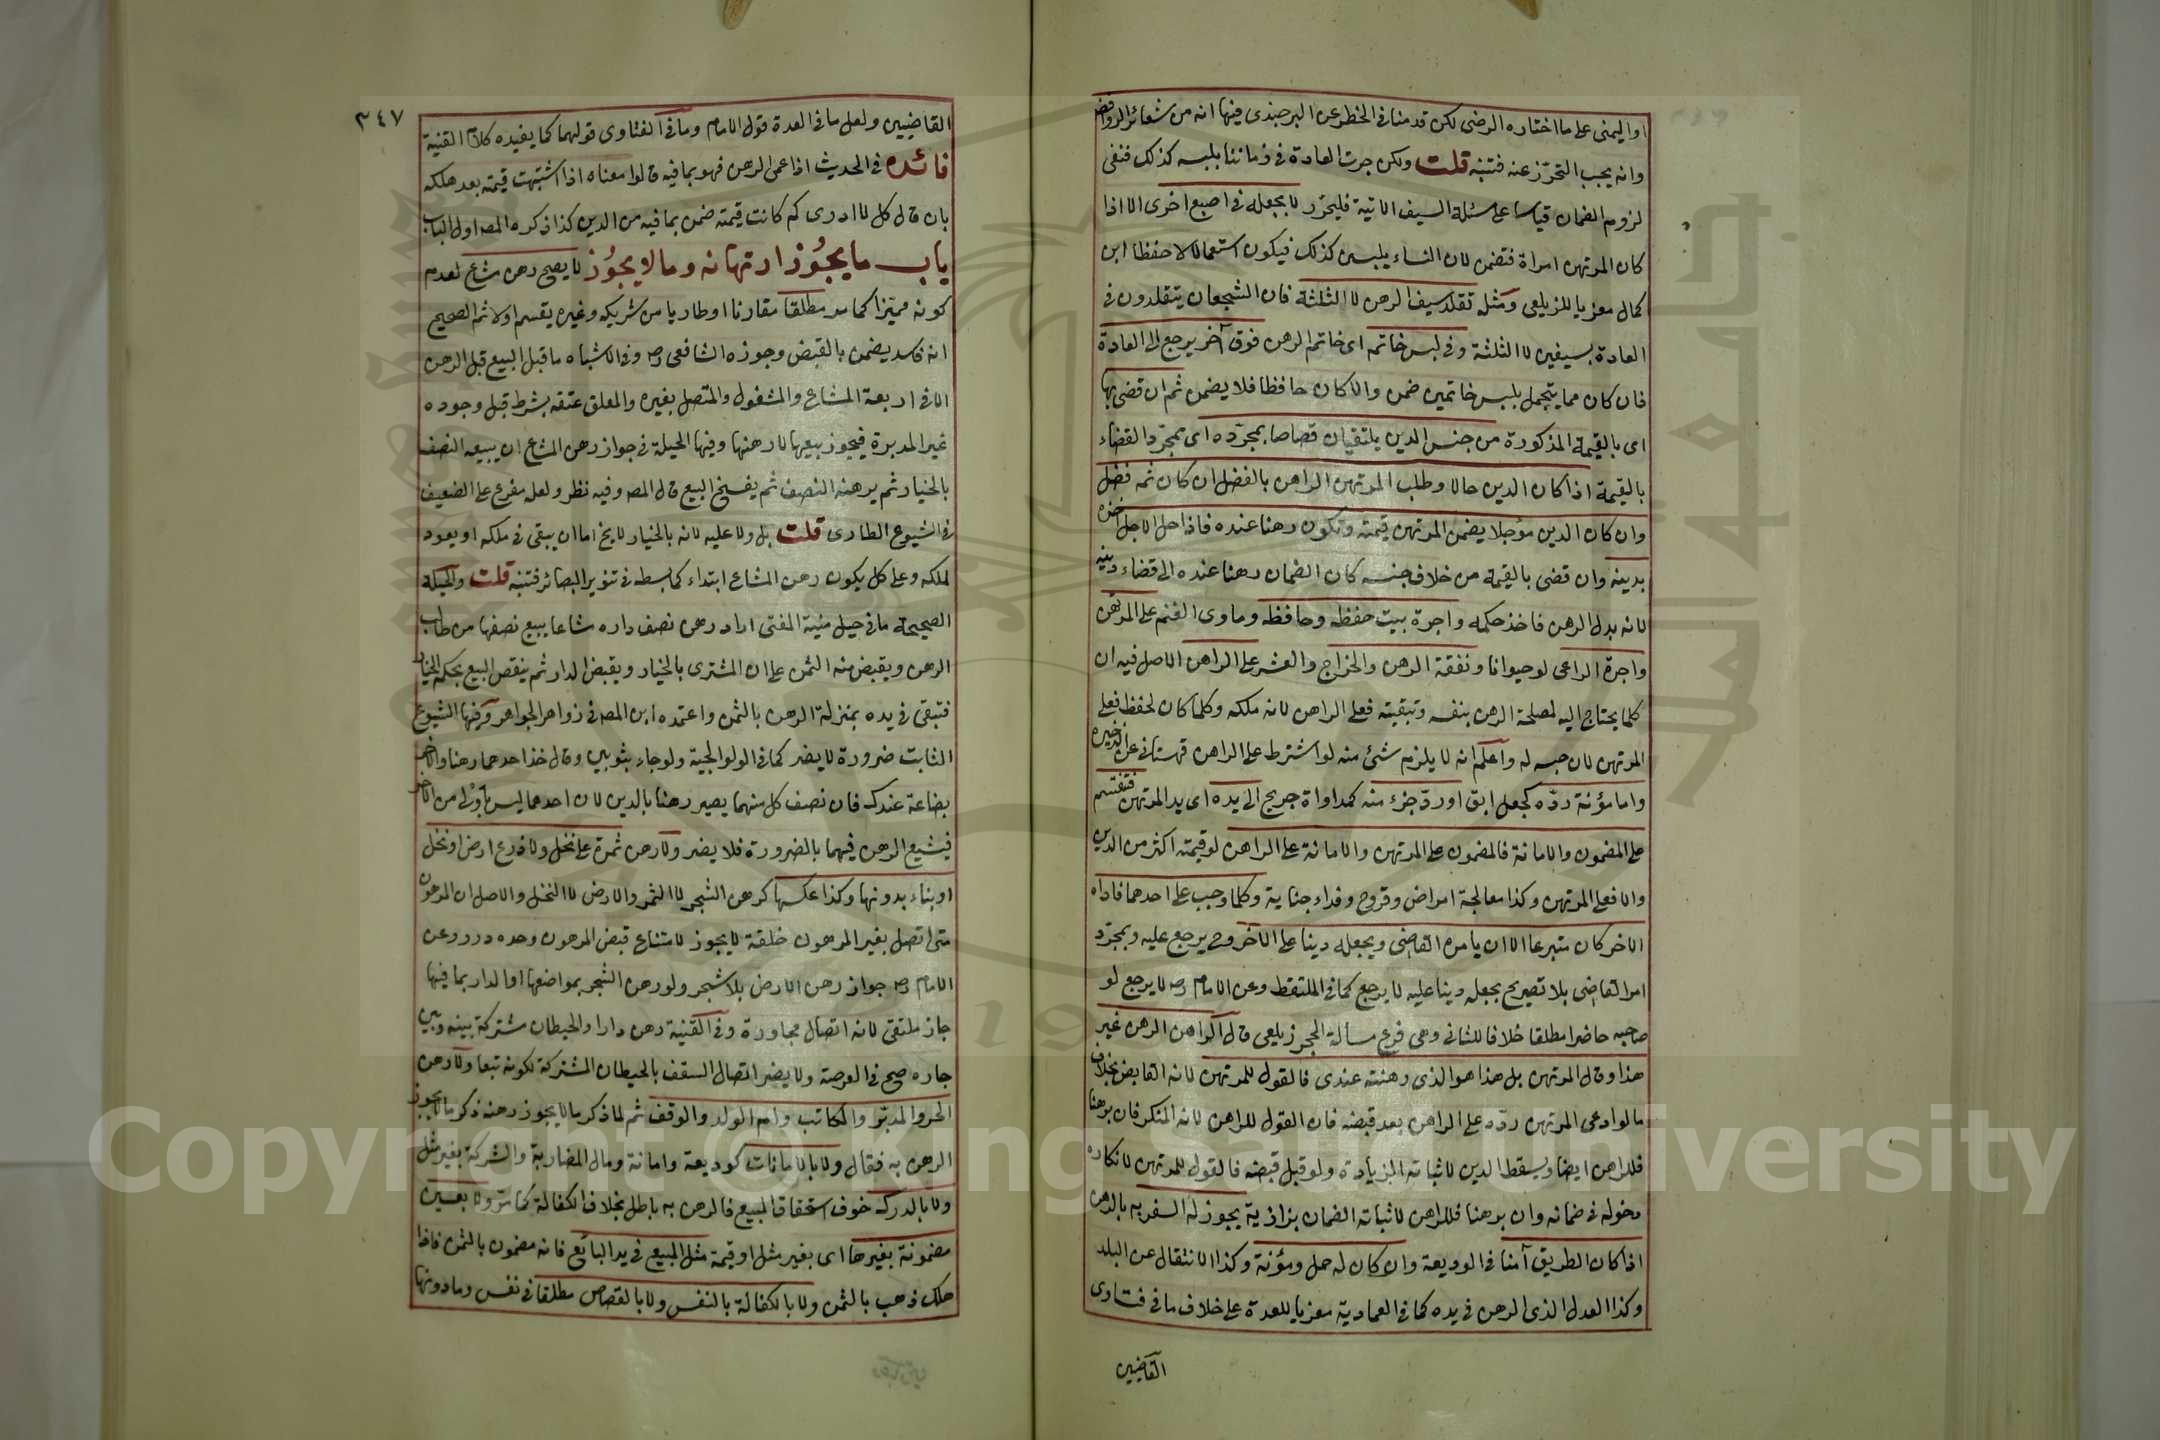 او اليمنى على ما اختاره الرضى لكن قدمنا فى الخطر عن البرجندى فيها انه من شعائر الروافض
وانه يجب التحرّز عنه فتنبه قلت ولكن جرت العادة فى زماننا بلبسه كذلك فنفى
لزوم الضمان قياسا على مسئلة السيف الاتية فليحرر لا بجعله فى اصبع اخرى الا اذا
كان المرتهن امراة فتضمن لان النساء يلبسن كذلك فيكون استعمالا لا حفظا ابن
كمال معزيا للزيلعى ومثله تقلد سيف الرهن لا الثلثة فان الشجعان يتقلدون فى
العادة بسيفين لا الثلثة وفى لبس خاتمه اى خاتم الرهن فوق آخر يرجع الى العادة
فان كان مما يتجمل بلبس خاتمين ضمن والا كان حافظا فلا يضمن ثم ان قضى بها
اى بالقيمة المذكورة من جنس الدين يلتقيان قصاصا بمجرّده اى بمجرّد القضاء
بالقيمة اذا كان الدين حالا وطلب المرتهن الراهن بالفضل ان كان ثمه فضل
وان كان الدين مؤجلا يضمن المرتهن قيمته وتكون رهنا عنده فاذا حل الاجل اخذه
بدينه وان قضى بالقيمة من خلاف جنسه كان الضمان رهنا عنده الى قضاء دينه
لانه بدل الرهن فاخذ حكمه واجرة بيت حفظه وحافظه وماوى الغنم على المرتهن
واجرة الراعى لو حيوانا ونفقة الرهن والخراج والعشر على الراهن الاصل فيه ان
كلما يحتاج اليه لمصلحة الرهن بنفسه وتبقيته فعلى الراهن لانه ملكه وكلما كان لحفظه فعلى
المرتهن لان حبسه له واعلم انه لا يلزمه شئ منه لو اشترط على الراهن قهستانى عن الذخيره
واما مؤنة ردّه كجعل ابق او ردّ جزء منه كمداواة جريح الى يده اى يد المرتهن فتقسم
على المضمون والامانة فالمضمون على المرتهن والامانة على الراهن لو قيمته اكثر من الدين
والا فعلى المرتهن وكذا معالجة امراض وقروح وفداء جناية وكلما وجب على احدهما فاداه
الاخر كان متبرعا الا ان يامره القاضى ويجعله دينا على الآخر وح يرجع عليه وبمجرّد
امر القاضى بلا تصريح بجعله دينا عليه لا يرجع كما فى الملتقط وعن الامام رح لا يرجع لو
صاحبه حاضرا مطلقا خلافا للثانى وهى فرع مسألة الحجر زيلعى قال الراهن الرهن غير
هذا وقال المرتهن بل هذا هو الذى رهنته عندى فالقول للمرتهن لانه القابض بخلاف
ما لو ادعى المرتهن ردّه على الراهن بعد قبضه فان القول للراهن لانه المنكر فان برهنا
فللراهن ايضا ويسقط الدين لاثباته الزيادة ولو قبل قبضه فالقول للمرتهن لانكاره
دخوله فى ضمانه وان برهنا فللراهن لاثباته الضمان بزازية يجوز له السفر به بالرهن
اذا كان الطريق آمنا فى الوديعة وان كان له حمل ومؤنة وكذا الانتقال عن البلد
وكذا العدل الذى الرهن فى يده كما فى العمادية معزيا للعدة على خلاف ما فى فتاوى
القاضيين
٣٤٧
القاضيين ولعل ما فى العدة قول الامام وما فى الفتاوى قولهما كما يفيده كلام القنية
فائده فى الحديث اذا عمى الرهن فهو بما فيه قالوا معناه اذا اشتبهت قيمته بعد هلكه
بان قال كل لا ادرى كم كانت قيمته ضمن بما فيه من الدين كذا ذكره المصه اول الباب
باب ما يجوز ارتهانه وما لا يجوز لا يصح رهن مشاع لعدم
كونه مميّزا كما مر مطلقا مقارنا او طاريا من شريكه وغيره يقسم اولا ثم الصحيح
انه فاسد يضمن بالقبض وجوزه الشافعى رح وفى الاشباه ما قبل البيع قبل الرهن
الا فى اربعة المشاع والمشغول والمتصل بغيره والمعلق عتقه بشرط قبل وجوده
غير المدبرة فيجوز بيعها لا رهنها وفيها الحيلة فى جواز رهن المشاع ان يبيعه النصف
بالخيار ثم يرهنه النصف ثم يفسخ البيع قال المصه وفيه نظر ولعله مفرع على الضعيف
فى الشيوع الطارى قلت بل ولا عليه لانه بالخيار لا يخ اما ان يبقى فى ملكه او يعود
لملكه وعلى كل يكون رهن المشاع ابتداء كما بسطه فى تنوير البصائر فتنبه قلت والحيلة
الصحيحة ما فى حيل منية المفتى اراد رهن نصف داره مشاعا يبيع نصفها من طالب
الرهن ويقبض منه الثمن على ان المشترى بالخيار ويقبض الدار ثم ينقص البيع بحكم الخيار
فتبقى فى يده بمنزلة الرهن بالثمن واعتمده ابن المصه فى زواهر الجواهر وفيها الشيوع
الثابت ضرورة لا يضر كما فى الولوالجية ولو جاء بثوبين وقال خذ احدهما رهنا والاخر
بضاعة عندك فان نصف كل منهما يصير رهنا بالدين لان احدهما ليس باولى من الاخر
فيشيع الرهن فيهما بالضرورة فلا يضر ولا رهن ثمرة على نخل ولا زرع ارض او نخل
او بناء بدونها وكذا عكسها كرهن الشجر لا الثمر والارض لا النخل والاصل ان المرهون
متى اتصل بغير المرهون خلقة لا يجوز لامتناع قبض المرهون وحده درر وعن
الامام رح جواز رهن الارض بلا شجر ولو رهن الشجر بمواضعها او الدار بما فيها
جاز ملتقى لانه اتصال مجاورة وفى القنية رهن دارا والحيطان مشتركة بينه وبين
جاره صح فى العرصة ولا يضر اتصال السقف بالحيطان المشتركة لكونه تبعا ولا رهن
الحر والمدبر والمكاتب وام الولد والوقف ثم لما ذكر ما لا يجوز رهنه ذكر ما لا يجوز
الرهن به فقال ولا بالامانات كوديعة وامانة ومال المضاربة والشركة بغير مثل
ولا بالدرك خوف استحقاق المبيع فالرهن به باطل بخلاف الكفالة كما مرّ ولا بعين
مضمونة بغيرها اى بغير مثل او قيمة مثل المبيع فى يد البائع فانه مضمون بالثمن فاذا
هلك ذهب بالثمن ولا بالكفالة بالنفس ولا بالقصاص مطلقا فى نفس وما دونها
Copyright © King Saud University